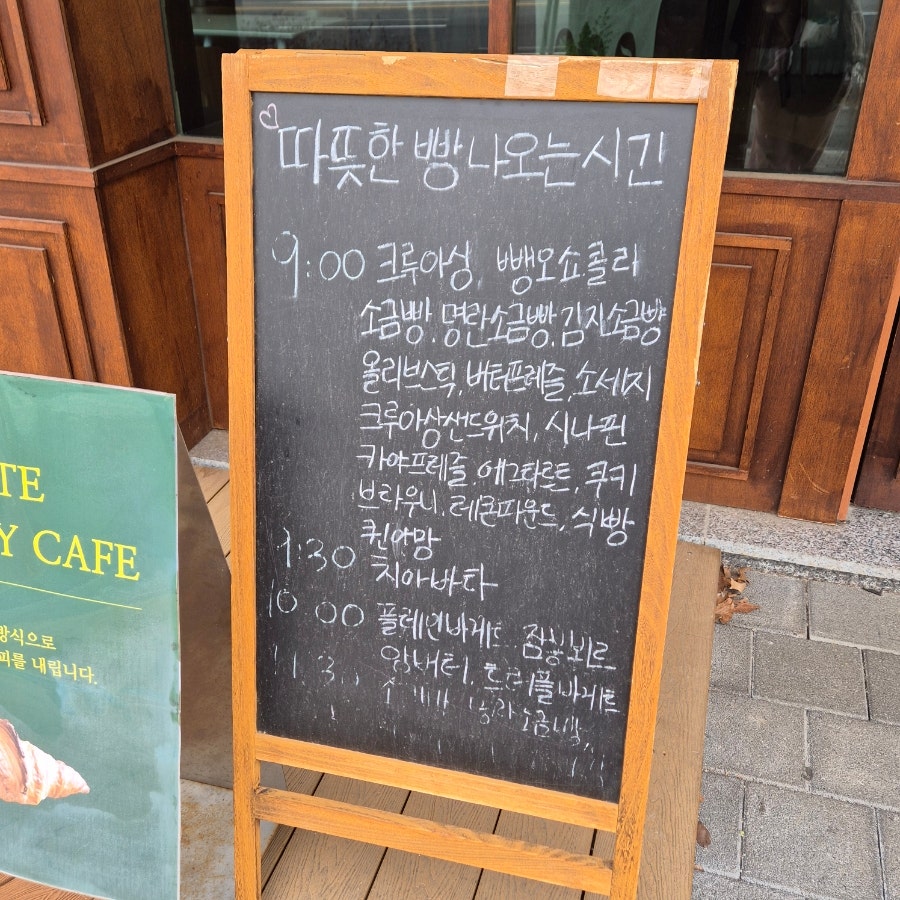 따뜻한 빵 나오는 시간
9:00 크루아상, 뺑오쇼콜라
소금빵, 명란소금빵, 김치소금빵
올리브스틱, 버터프레즐, 소세지
크루아상샌드위치, 시나핀
카야프레즐, 에그타르트, 쿠키
브라우니, 레몬파운드, 식빵
퀸아망
9:30 치아바타
10:00 플레인바게트 잠봉뵈르
앙버터, 트러플바게트
소금빵,
TE
Y CAFE
방식으로
피를 내립니다.